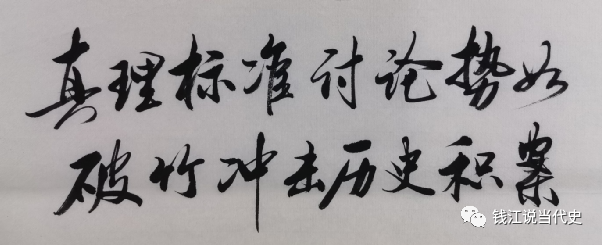 真理标准讨论势如
破竹冲击历史积案
钱江说当代史